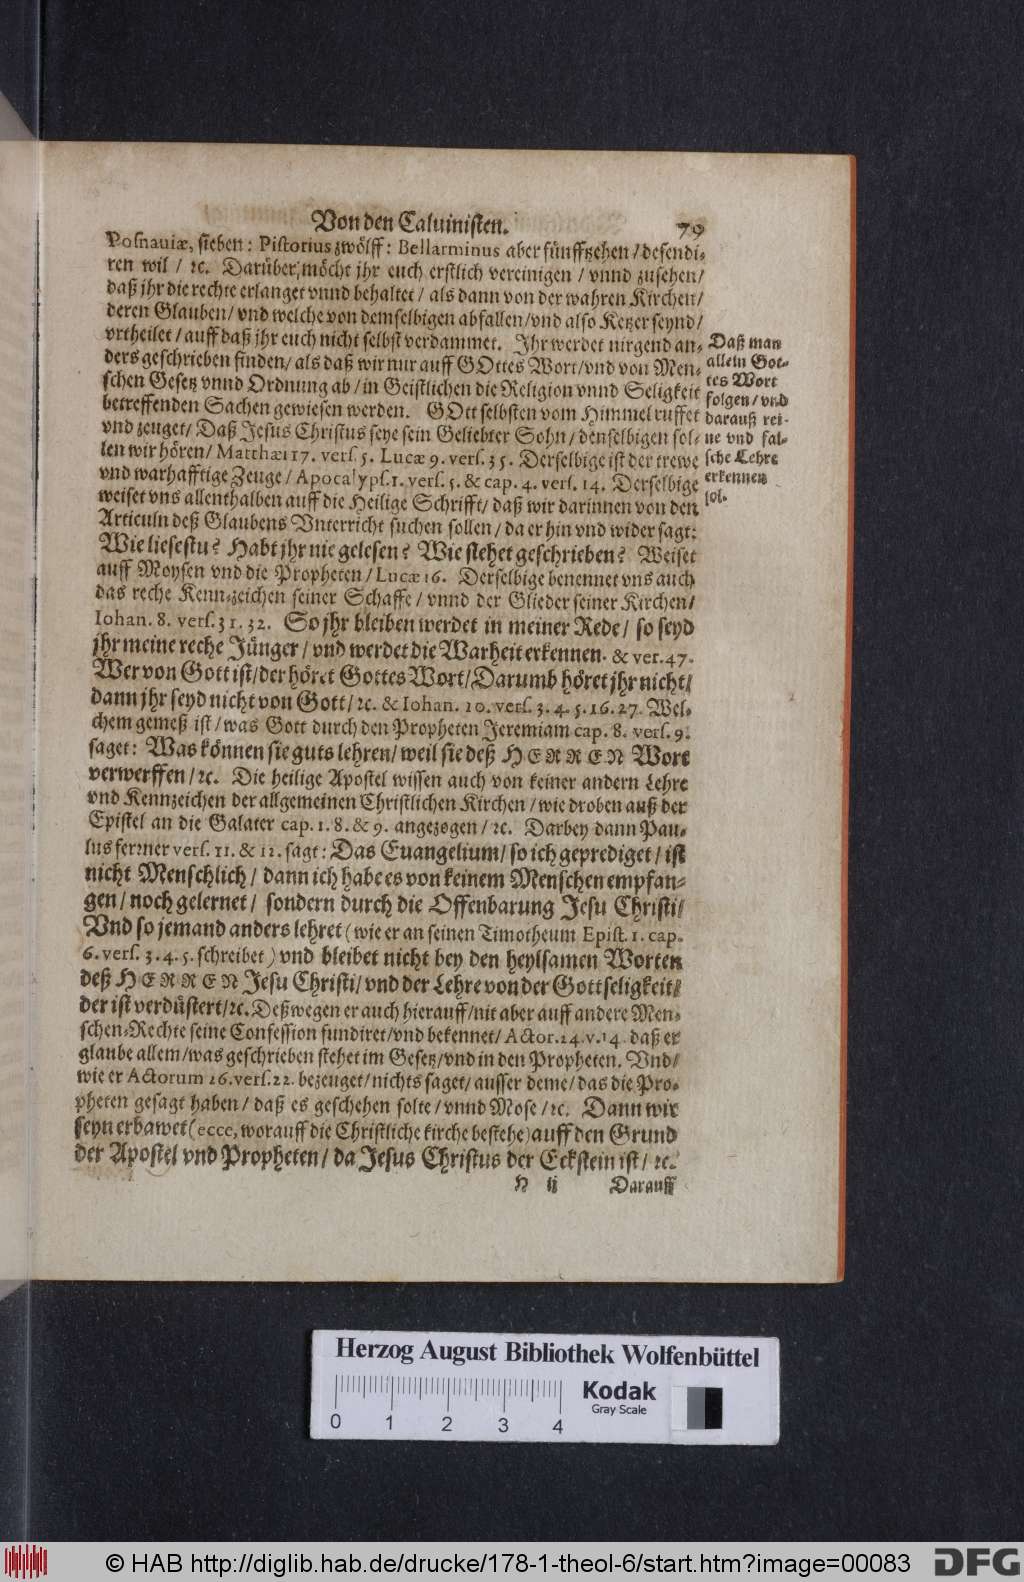 Von den Caluinisten. 79
Posnaviæ, sieben: Pistorius zwölff: Bellarminus aber fünfftzehen / defendi-
ren wil / ꝛc. Darüber möcht jhr euch erstlich vereinigen / vnnd zusehen /
daß jhr die rechte erlanget vnnd behaltet / als dann von der wahren Kirchen /
deren Glauben / vnd welche von demselbigen abfallen / vnd also Ketzer seynd /
vrtheilet / auff daß jhr euch nicht selbst verdammet. Jhr werdet nirgend an-
ders geschrieben finden / als daß wir nur auff GOttes Wort / vnd von Men-
schen Gesetz vnnd Ordnung ab / in Geistlichen die Religion vnnd Seligkeit
betreffenden Sachen gewiesen werden. GOtt selbsten vom Himmel ruffet
vnd zeuget / Daß Jesus Christus seye sein Geliebter Sohn / denselbigen sol-
len wir hören / Matthæi 17. vers. 5. Lucæ 9. vers. 35. Derselbige ist der trewe
vnd warhafftige Zeuge / Apocalyps. 1. vers. 5. & cap. 4. vers. 14. Derselbige
weiset vns allenthalben auff die Heilige Schrifft / daß wir darinnen von den
Articuln deß Glaubens Vnterricht suchen sollen / da er hin vnd wider sagt:
Wie liesestu? Habt jhr nie gelesen? Wie stehet geschrieben? Weiset
auff Moysen vnd die Propheten / Lucæ 16. Derselbige benennet vns auch
das reche Kennzeichen seiner Schaffe / vnnd der Glieder seiner Kirchen /
Iohan. 8. vers. 31. 32. So jhr bleiben werdet in meiner Rede / so seyd
jhr meine reche Jünger / vnd werdet die Warheit erkennen. & ver. 47.
Wer von Gott ist / der höret Gottes Wort / Darumb höret jhr nicht /
dann jhr seyd nicht von Gott / ꝛc. & Iohan. 10. vers. 3. 4. 5. 16. 27. Wel-
chem gemeß ist / was Gott durch den Propheten Jeremiam cap. 8. vers. 9.
saget: Was können sie guts lehren / weil sie deß HERREN Wort
verwerffen / ꝛc. Die heilige Apostel wissen auch von keiner andern Lehre
vnd Kennzeichen der allgemeinen Christlichen Kirchen / wie droben auß der
Epistel an die Galater cap. 1. 8. & 9. angezogen / ꝛc. Darbey dann Pau-
lus ferrner vers. 11. & 12. sagt: Das Euangelium / so ich geprediget / ist
nicht Menschlich / dann ich habe es von keinem Menschen empfan-
gen / noch gelernet / sondern durch die Offenbarung Jesu Christi /
Vnd so jemand anders lehret (wie er an seinen Timotheum Epist. 1. cap.
6. vers. 3. 4. 5. schreibet) vnd bleibet nicht bey den heylsamen Worten
deß HERREN Jesu Christi / vnd der Lehre von der Gottseligkeit /
der ist verdüstert / ꝛc. Deßwegen er auch hierauff / nit aber auff andere Men-
schen-Rechte seine Confession fundiret / vnd bekennet / Actor. 24. v. 14. daß er
glaube allem / was geschrieben stehet im Gesetz / vnd in den Propheten. Vnd /
wie er Actorum 26. vers. 22. bezeuget / nichts saget / ausser deme / das die Pro-
pheten gesagt haben / daß es geschehen solte / vnnd Mose / ꝛc. Dann wir
seyn erbawet (ecce, worauff die Christliche kirche bestehe) auff den Grund
der Apostel vnd Propheten / da Jesus Christus der Eckstein ist / ꝛc.
H ij Darauff
Daß man
allein Got-
tes Wort
folgen / vnd
darauß rei-
ne vnd fal-
sche Lehre
erkennen
sol.
Herzog August Bibliothek Wolfenbüttel
0 1 2 3 4
Kodak
Gray Scale
© HAB http://diglib.hab.de/drucke/178-1-theol-6/start.htm?image=00083
DFG